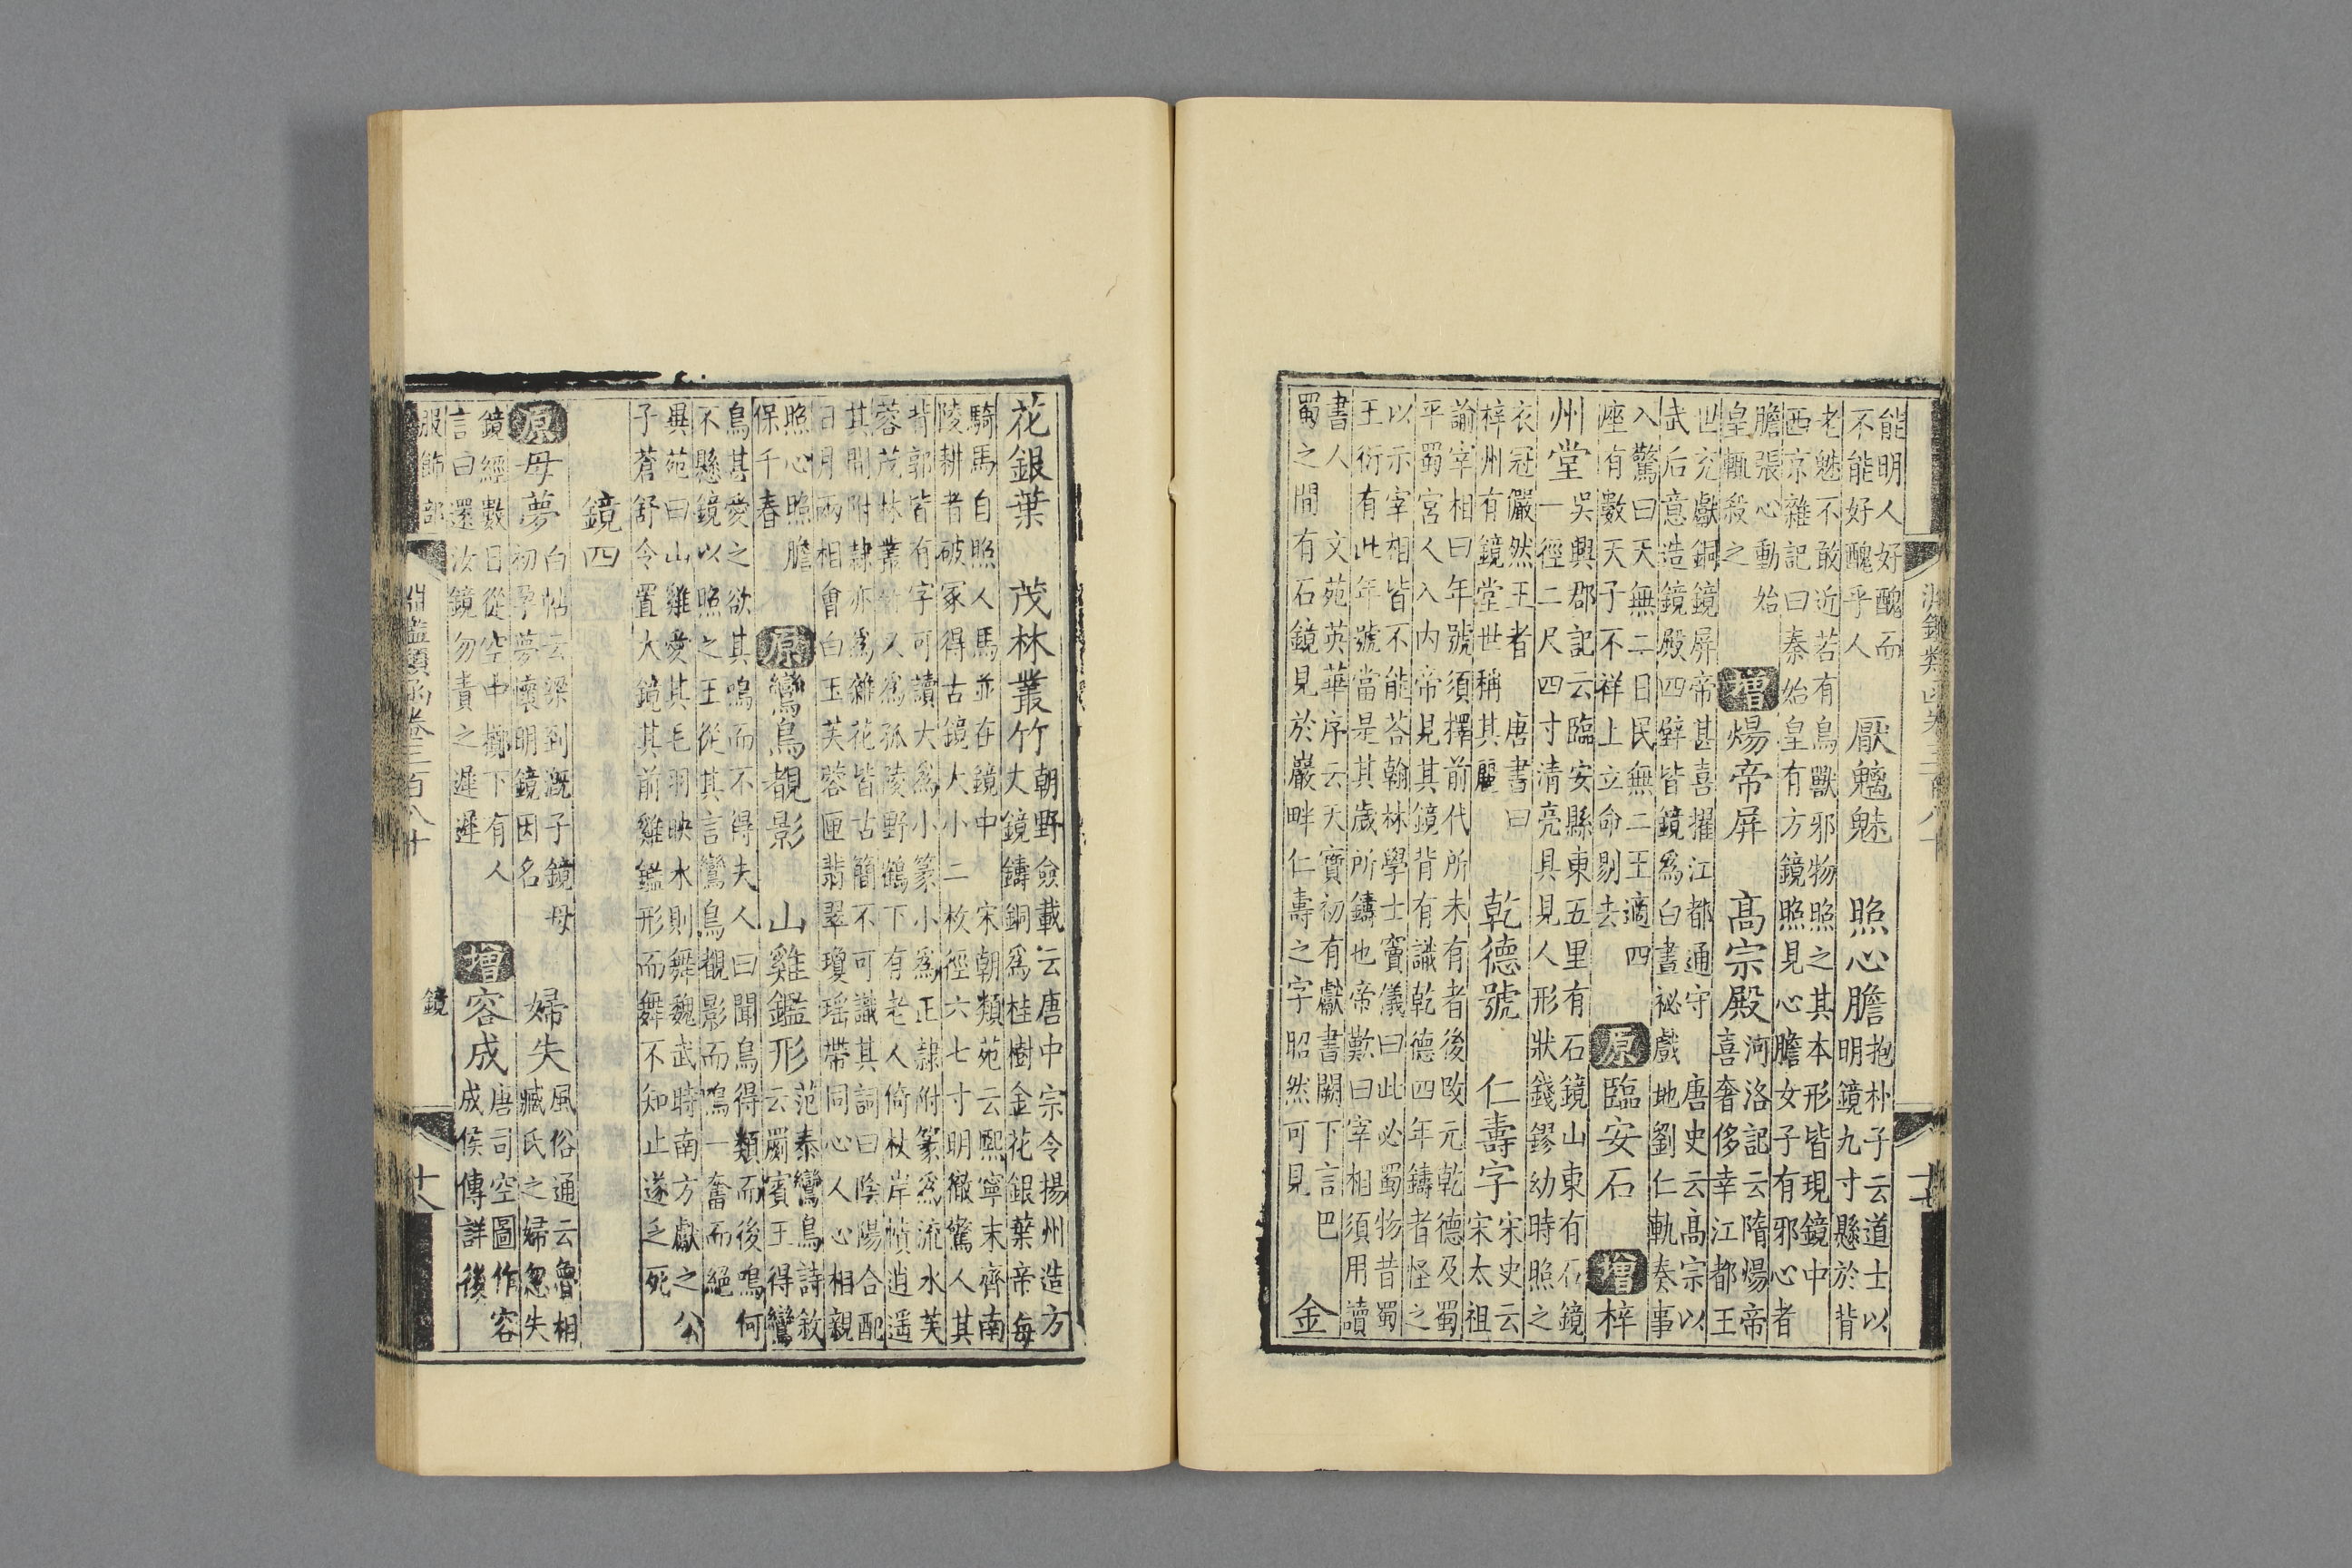 能明人好醜而
不能好醜乎人
厭魑魅　照心膽
抱朴子云道士以
明鏡九寸懸於背
老魅不敢近若有鳥獸邪物照之其本形皆現鏡中
西京雜記曰秦始皇有方鏡照見心膽女子有邪心者
膽張心動始
皇輒殺之
增煬帝屏　高宗殿
河洛記云隋煬帝
喜奢侈幸江都王
世充獻銅鏡屏帝甚喜擢江都通守　唐史云高宗以
武后意造鏡殿四壁皆鏡爲白晝祕戲地劉仁軌奏事
入驚曰天無二日民無二王適四
座有數天子不祥上立命剔去
原臨安石　增梓
州堂
吳興郡記云臨安縣東五里有石鏡山東有石鏡
一徑二尺四寸清亮具見人形狀錢鏐幼時照之
衣冠儼然王者　唐書曰
梓州有鏡堂世稱其麗
乾德號　仁壽字
宋史云
宋太祖
諭宰相曰年號須擇前代所未有者後改元乾德及蜀
平蜀宮人入內帝見其鏡背有識乾德四年鑄者怪之
以示宰相皆不能荅翰林學士竇儀曰此必蜀物昔蜀
王衍有此年號當是其歲所鑄也帝歎曰宰相須用讀
書人　文苑英華序云天寶初有獻書闕下言巴
蜀之間有石鏡見於巖畔仁壽之字昭然可見
金
花銀葉　茂林叢竹
朝野僉載云唐中宗令揚州造方
大鏡鑄銅爲桂樹金花銀葉帝每
騎馬自照人馬並在鏡中　宋朝類苑云熙寧末齊南
陵耕者破冢得古鏡大小二枚徑六七寸明徹驚人其
背郭皆有字可讀大爲小篆小爲正隸附篆爲流水芙
蓉茂林叢竹又爲孤陵野鶴下有老人倚杖岸幘逍遥
其間附隸亦爲雜花皆古簡不可識其詞曰陰陽合配
日月兩相會白玉芙蓉匣翡翠瓊瑶帶同心人心相親
照心照膽
保千春
原鸞鳥覩影　山雞鑑形
范泰鸞鳥詩敘
云罽賓王得鸞
鳥甚愛之欲其鳴而不得夫人曰聞鳥得類而後鳴何
不懸鏡以照之王從其言鸞鳥覩影而鳴一奮而絕
異苑曰山雞愛其毛羽映水則舞魏武時南方獻之公
子蒼舒令置大鏡其前雞鑑形而舞不知止遂乏死
鏡四
原母夢
白帖云梁到溉子鏡母
初孕夢懷明鏡因名
婦失
風俗通云魯相
臧氏之婦忽失
鏡經數日從空中擲下有人
言曰還汝鏡勿責之遲遲
增容成
唐司空圖作容
成侯傳詳後
服飾部　淵鑑類函卷三百八十　鏡　十八